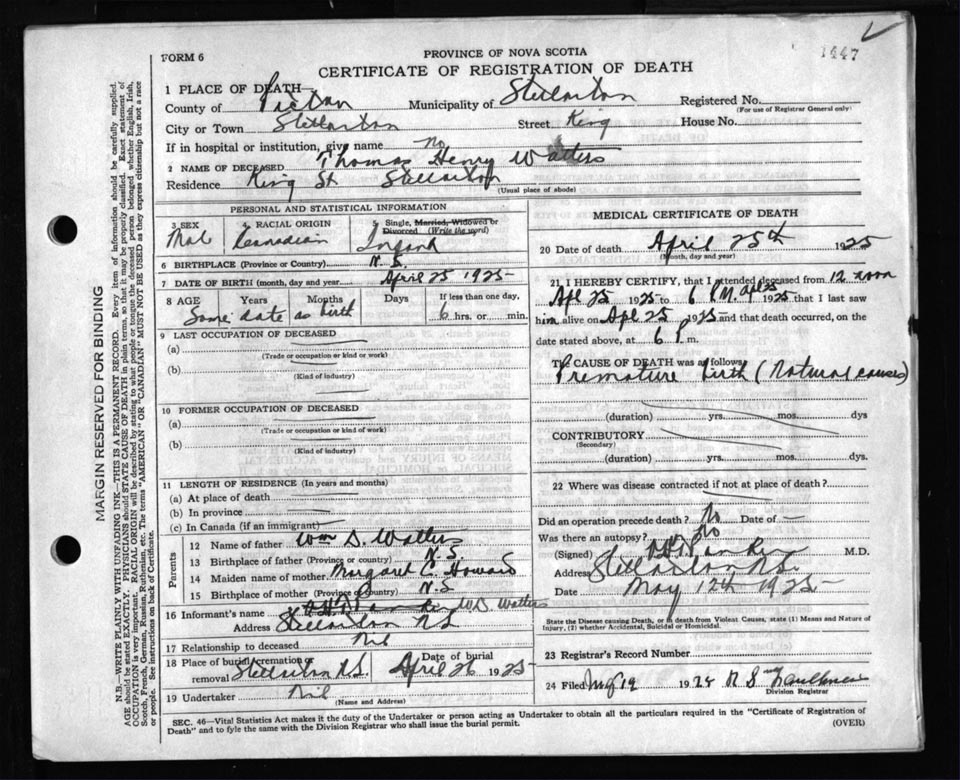 1447
FORM 6
PROVINCE OF NOVA SCOTIA
CERTIFICATE OF REGISTRATION OF DEATH
1 PLACE OF DEATH—
County of Pictou Municipality of Stellarton Registered No.
(For use of Registrar General only)
City or Town Stellarton Street King House No.
If in hospital or institution, give name No
2 NAME OF DECEASED Thomas Henry Watters
Residence King St Stellarton
(Usual place of abode)
PERSONAL AND STATISTICAL INFORMATION
3 SEX 4 RACIAL ORIGIN 5 Single, Married, Widowed or Divorced (Write the word)
Mal Canadian Infant
6 BIRTHPLACE (Province or Country) N.S.
7 DATE OF BIRTH (month, day and year) April 25 1925
8 AGE Years Months Days If less than one day,
Same date as birth 6 hrs. or min.
9 LAST OCCUPATION OF DECEASED
(a)
(Trade or occupation or kind or work)
(b)
(Kind of industry)
10 FORMER OCCUPATION OF DECEASED
(a)
(Trade or occupation or kind of work)
(b)
(Kind of industry)
11 LENGTH OF RESIDENCE (In years and months)
(a) At place of death
(b) In province
(c) In Canada (if an immigrant)
Parents
12 Name of father Wm D. Watters
13 Birthplace of father (Province or country) N.S.
14 Maiden name of mother Margaret C. Howard
15 Birthplace of mother (Province or Country) N.S
16 Informant's name W.D. Watters
Address Stellarton N.S
17 Relationship to deceased Nil
18 Place of burial, cremation or removal Stellarton N.S. Date of burial April 26 1925
19 Undertaker Nil
(Name and Address)
MEDICAL CERTIFICATE OF DEATH
20 Date of death April 25th 1925
(Month, day and year)
21 I HEREBY CERTIFY, that I attended deceased from 12 noon
Apl 25 1925 to 6 P.M. Apl 25 1925 that I last saw
him alive on Apl 25 1925 and that death occurred, on the
date stated above, at 6 P.m.
The CAUSE OF DEATH was as follows:
Premature birth (Natural causes)
(duration) yrs. mos. dys
CONTRIBUTORY
(Secondary)
(duration) yrs. mos. dys.
22 Where was disease contracted if not at place of death?
Did an operation precede death? No Date of —
Was there an autopsy? No
(Signed) M.D.
Address Stellarton N.S.
Date May 12th 1925
State the Disease causing Death, or in death from Violent Causes, state (1) Means and Nature of Injury, (2) whether Accidental, Suicidal or Homicidal.
23 Registrar's Record Number
24 Filed May 19 1925 Faulkner
Division Registrar
SEC. 46—Vital Statistics Act makes it the duty of the Undertaker or person acting as Undertaker to obtain all the particulars required in the "Certificate of Registration of
Death" and to fyle the same with the Division Registrar who shall issue the burial permit.
(OVER)
MARGIN RESERVED FOR BINDING
N.B.—WRITE PLAINLY WITH UNFADING INK—THIS IS A PERMANENT RECORD. Every item of information should be carefully supplied.
AGE should be stated EXACTLY. PHYSICIANS should STATE CAUSE OF DEATH in plain terms, so that it may be properly classified. Exact statement of
OCCUPATION is very important. RACIAL ORIGIN will be described by stating to what people or tongue the deceased person belonged whether English, Irish,
Scotch, French, German, Russian, Ruthenian, etc. The terms "AMERICAN" OR "CANADIAN" MUST NOT BE USED as they express citizenship but not a race
or people. See instructions on back of Certificate.